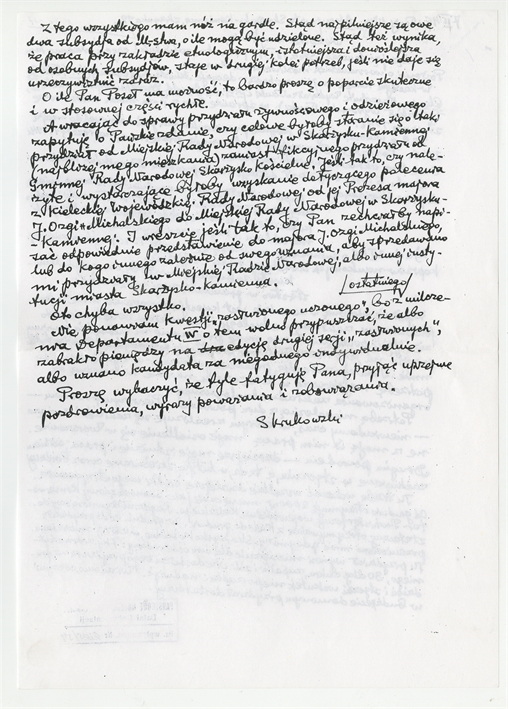 Z tego wszystkiego mam nóż na gardle. Stąd najpilniejsze są owe
dwa subsydja od M-stwa, o ile mogą być udzielone. Stąd też wynika,
że praca przy zakładzie etnologicznym, istotniejsza i donioślejsza
od osobnych subsydjów, staje w drugiej kolei potrzeb, jeśli nie daje się
urzeczywistnić zaraz.
O ile Pan Poseł ma możność, to bardzo proszę o poparcie skuteczne
i w stosownej części rychłe.
A wracając do sprawy przydziału żywnościowego i odzieżowego
zapytuję o Pańskie zdanie, czy celowe byłoby staranie się o taki
przydział od Miejskiej Rady Narodowej w Skarżysku-Kamiennej
(najbliżej mego mieszkania) zamiast fikcyjnego przydziału od
Gminnej Rady Narodowej Skarżysko Kościelne. Jeśli tak to, czy nale-
żyte i wystarczające byłoby uzyskanie dotyczącego polecenia
z Kieleckiej Wojewódzkiej Rady Narodowej od jej Prezesa majora
J. Ozgi-Michalskiego do Miejskiej Rady Narodowej w Skarżysku-
Kamiennej. I wreszcie jeśli tak to, czy Pan zechciałby napi-
sać odpowiednie przedstawienie do majora J. Ozgi Michalskiego,
lub do kogo innego zależnie od swego uznania, aby sprzedawano
mi przydziały w Miejskiej Radzie Narodowej, albo innej insty-
tucji miasta Skarżysko-Kamienna.
Oto chyba wszystko. ostatniego
Nie ponawiam kwestji zasłużonego uczonego, bo z milcze-
nia Departamentu W o tem wolno przypuszczać, że albo
zabrakło pieniędzy na edycję drugiej serji „zasłużonych",
albo uznano kandydata za niegodnego indywidualnie.
Proszę wybaczyć, że tyle fatyguję Pana, przyjąć uprzejme
pozdrowienia, wyrazy poważania i zobowiązania.
Skrukowski